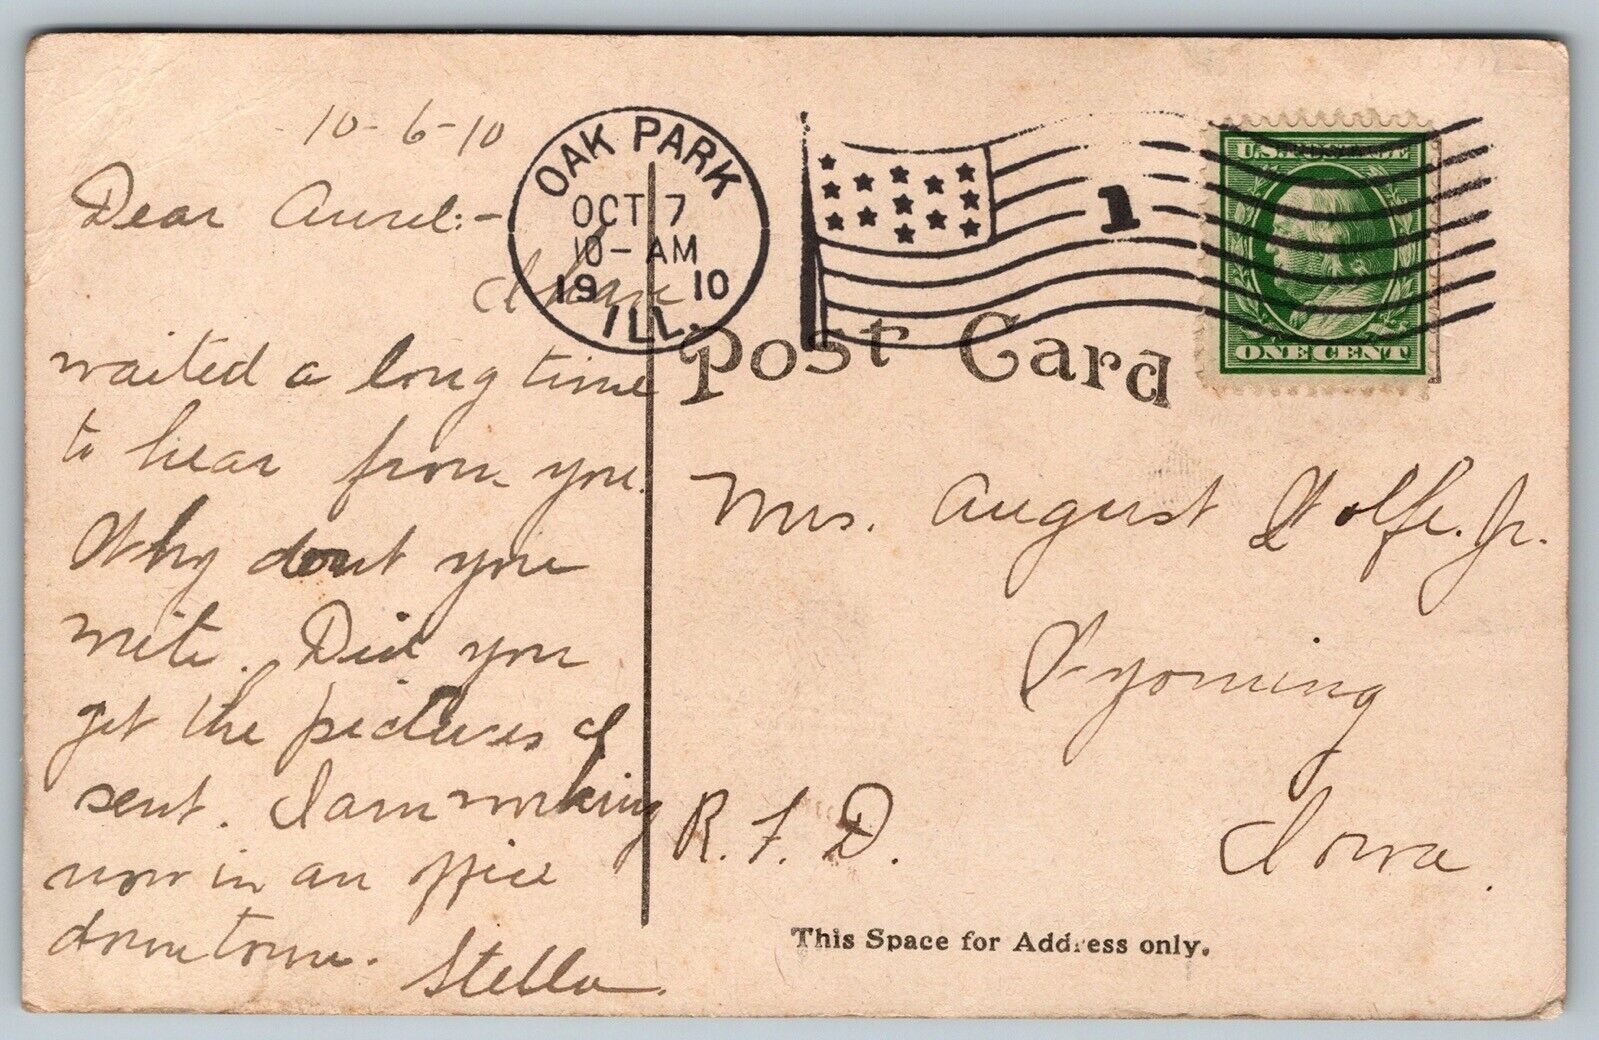 10-6-10
Dear Aurel:-
I have
waited a long time
to hear from you.
Why dont you
write. Did you
get the pictures I
sent. I am working
now in an office
downtown.
Stella.
OAK PARK
OCT 7
10-AM
1910
ILL.
1
U.S. POSTAGE
ONE CENT
Post Card
Mrs. August Wolfe. Jr.
Wyoming
R. F. D.
Iowa.
This Space for Address only.